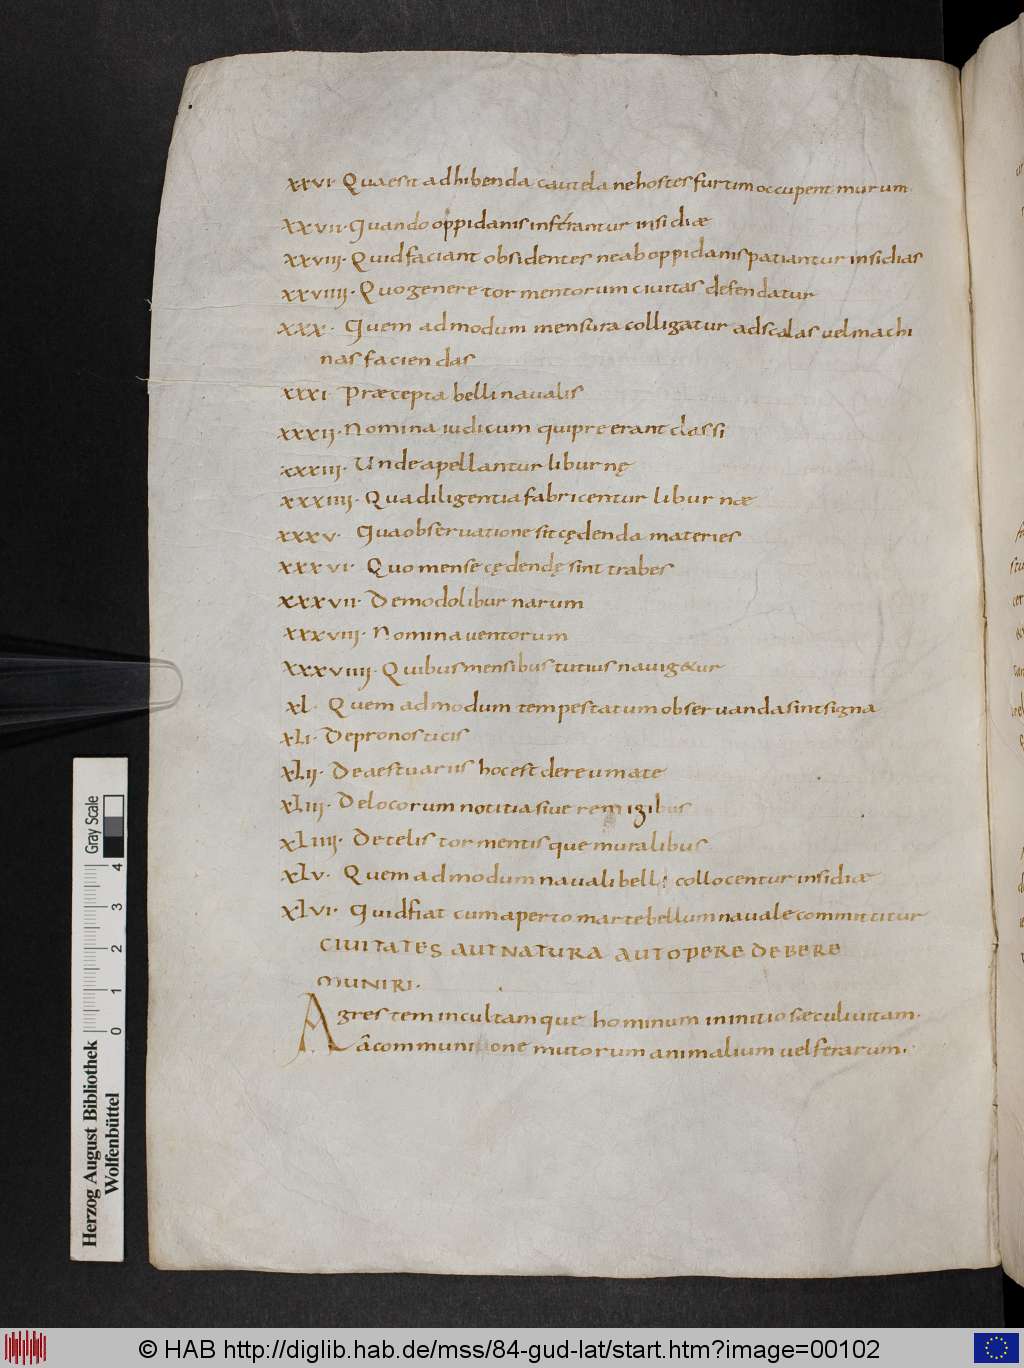 xxvi· Quae sit adhibenda cautela ne hostes furtim occupent murum·
xxvii· Quando oppidanis inferantur insidiæ
xxviii· Quid faciant obsidentes ne ab oppidanis patiantur insidias
xxviiii· Quo genere tormentorum ciuitas defendatur
xxx· Quem ad modum mensura colligatur ad scalas uel machi
nas faciendas
xxxi· Præcepta belli naualis
xxxii· Nomina iudicum qui preerant classi
xxxiii· Unde apellantur liburnę
xxxiiii· Qua diligentia fabricentur liburnæ
xxxv· Qua obseruatione sit cędenda materies
xxxvi· Quo mense cędendę sint trabes
xxxvii· De modo liburnarum
xxxviii· Nomina uentorum
xxxviiii· Quibus mensibus tutius nauig&ur
xl· Quem ad modum tempestatum obseruanda sint signa
xli· De pronosticis
xlii· De aestuariis hoc est de reumate
xliii· De locorum notitia siue remigibus
xliiii· De telis tormentisque muralibus
xlv· Quem ad modum nauali belli collocentur insidiæ
xlvi· Quid fiat cum aperto marte bellum nauale committitur
CIUITATES AUT NATURA AUT OPERE DEBERE
MUNIRI·
Agrestem incultamque hominum in initio sæculi uitam·
a communione mutorum animalium uel ferarum·
Herzog August Bibliothek
Wolfenbüttel
Gray Scale
0 1 2 3 4
© HAB http://diglib.hab.de/mss/84-gud-lat/start.htm?image=00102